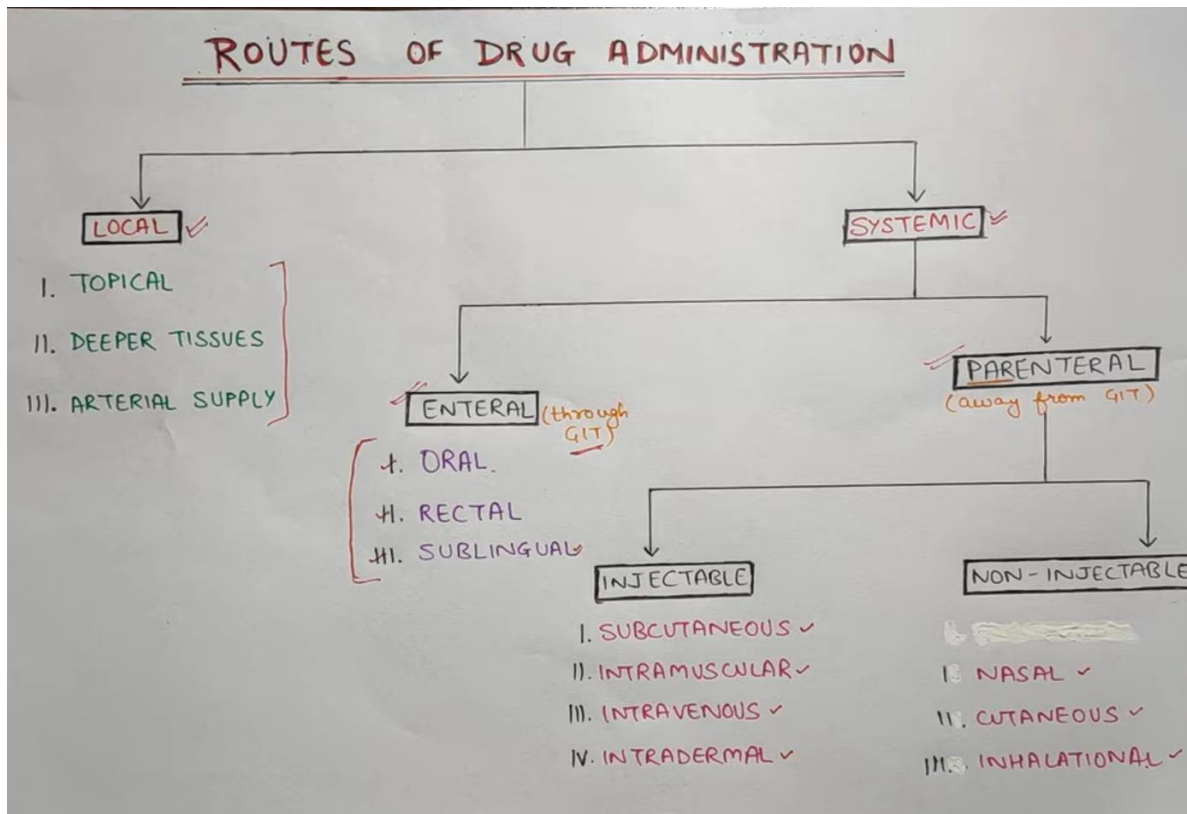 ROUTES OF DRUG ADMINISTRATION
LOCAL
I. TOPICAL
II. DEEPER TISSUES
III. ARTERIAL SUPPLY
SYSTEMIC
ENTERAL (through
GIT)
I. ORAL.
II. RECTAL
III. SUBLINGUAL
PARENTERAL
(away from GIT)
INJECTABLE
I. SUBCUTANEOUS
II. INTRAMUSCULAR
III. INTRAVENOUS
IV. INTRADERMAL
NON-INJECTABLE
I. NASAL
II. CUTANEOUS
III. INHALATIONAL